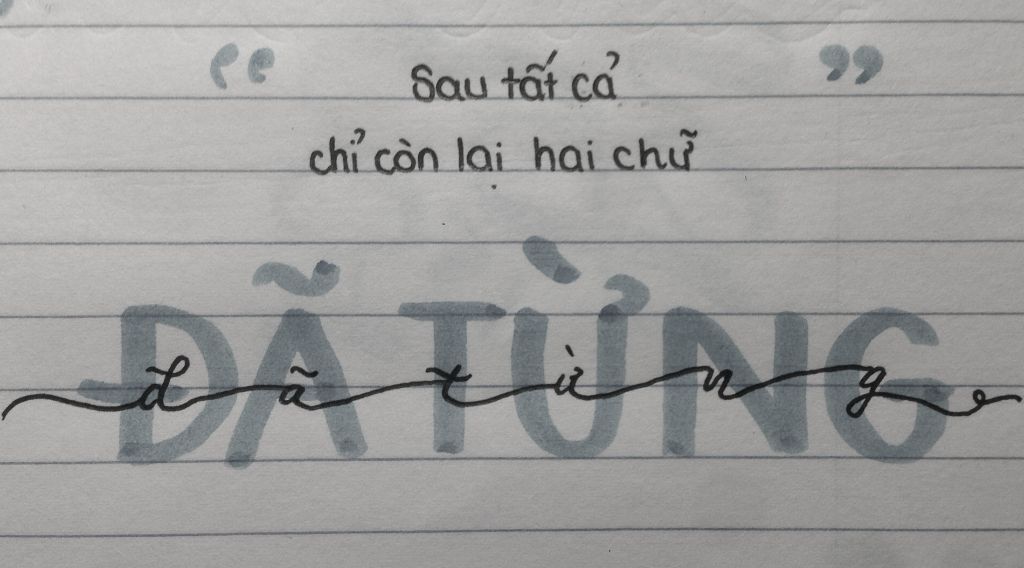 “ Sau tất cả ”
chỉ còn lại hai chữ
ĐÃ TỪNG
đã từng